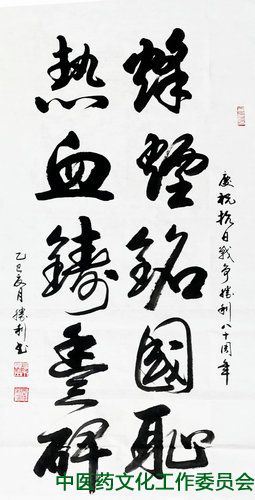 慶祝抗日戰争勝利八十周年
烽煙銘國耻
热血鑄豐碑
乙巳夏月勝利书
中医药文化工作委员会